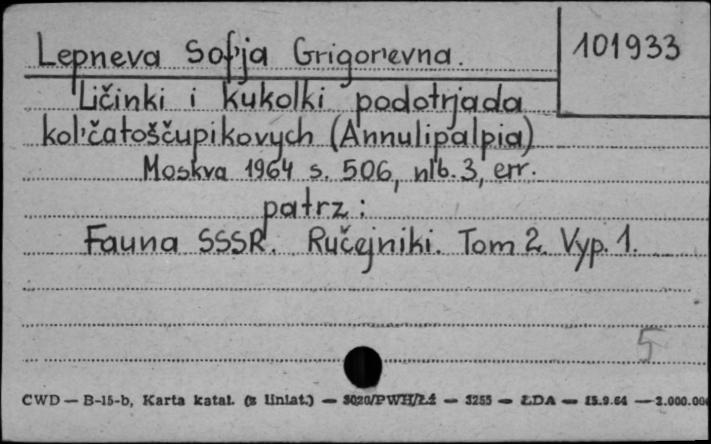 Lepneva Sof'ja Grigor'evna.
101933
Ličinki i kukolki podotrjada
kol'čatoščupikovych (Annulipalpia)
Moskva 1964 s. 506, nlb. 3, err.
patrz:
Fauna SSSR. Ručejniki. Tom 2. Vyp. 1.
5
CWD — B-15-b, Karta katal. (z liniat.) — 3020/PWH/Łź — 3255 — ŁDA — 15.9.64 — 2.000.00